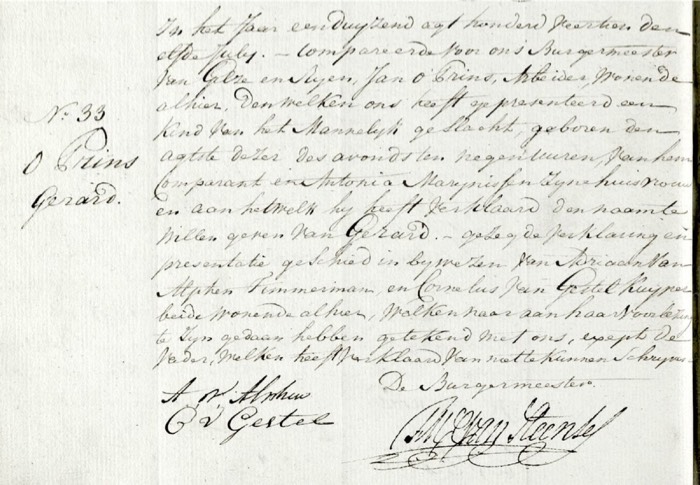 In het Jaar eenduyzend agt honderd veertien den
elfde July. – Compareerde voor ons Burgermeester
van Gilze en Ryen, Jan O Prins, Arbeider, Wonende
alhier, den welken ons heeft gepresenteerd een
kind van het Mannelyk geslacht, geboren den
agtste dezer des avonds ten negen uuren, van hem
Comparant en Antonia Marynissen zyne huisvrouw
en aan hetwelk hy heeft verklaard den naam te
willen geven van Gerard. – gezegde verklaring en
presentatie geschied in bywezen van Adriaan van
Alphen Timmerman en Cornelus van Gestel Kuyper
beide wonende alhier, welken naar aan haar voorlezing
te zyn gedaan hebben getekend met ons, exept de
Vader, welken heeft verklaard van niet te kunnen Schryven
De Burgermeester
No. 33
O Prins
Gerard.
A v Alphen
C v Gestel
van Steensel